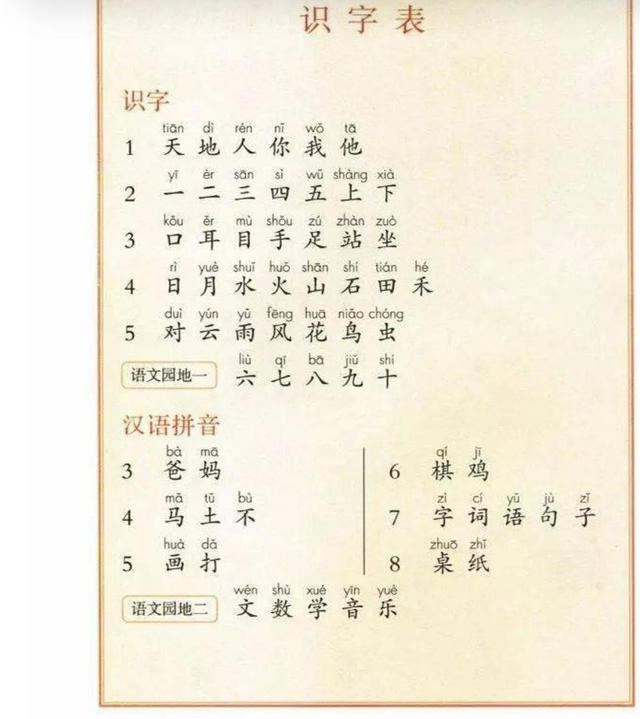 识字表
识字
tiān dì rén nǐ wǒ tā
1 天 地 人 你 我 他
yī èr sān sì wǔ shàng xià
2 一 二 三 四 五 上 下
kǒu ěr mù shǒu zú zhàn zuò
3 口 耳 目 手 足 站 坐
rì yuè shuǐ huǒ shān shí tián hé
4 日 月 水 火 山 石 田 禾
duì yún yǔ fēng huā niǎo chóng
5 对 云 雨 风 花 鸟 虫
liù qī bā jiǔ shí
语文园地一 六 七 八 九 十
汉语拼音
bà mā
3 爸 妈
mǎ tǔ bù
4 马 土 不
huà dǎ
5 画 打
qí jī
6 棋 鸡
zì cí yǔ jù zǐ
7 字 词 语 句 子
zhuō zhǐ
8 桌 纸
wén shù xué yīn yuè
语文园地二 文 数 学 音 乐